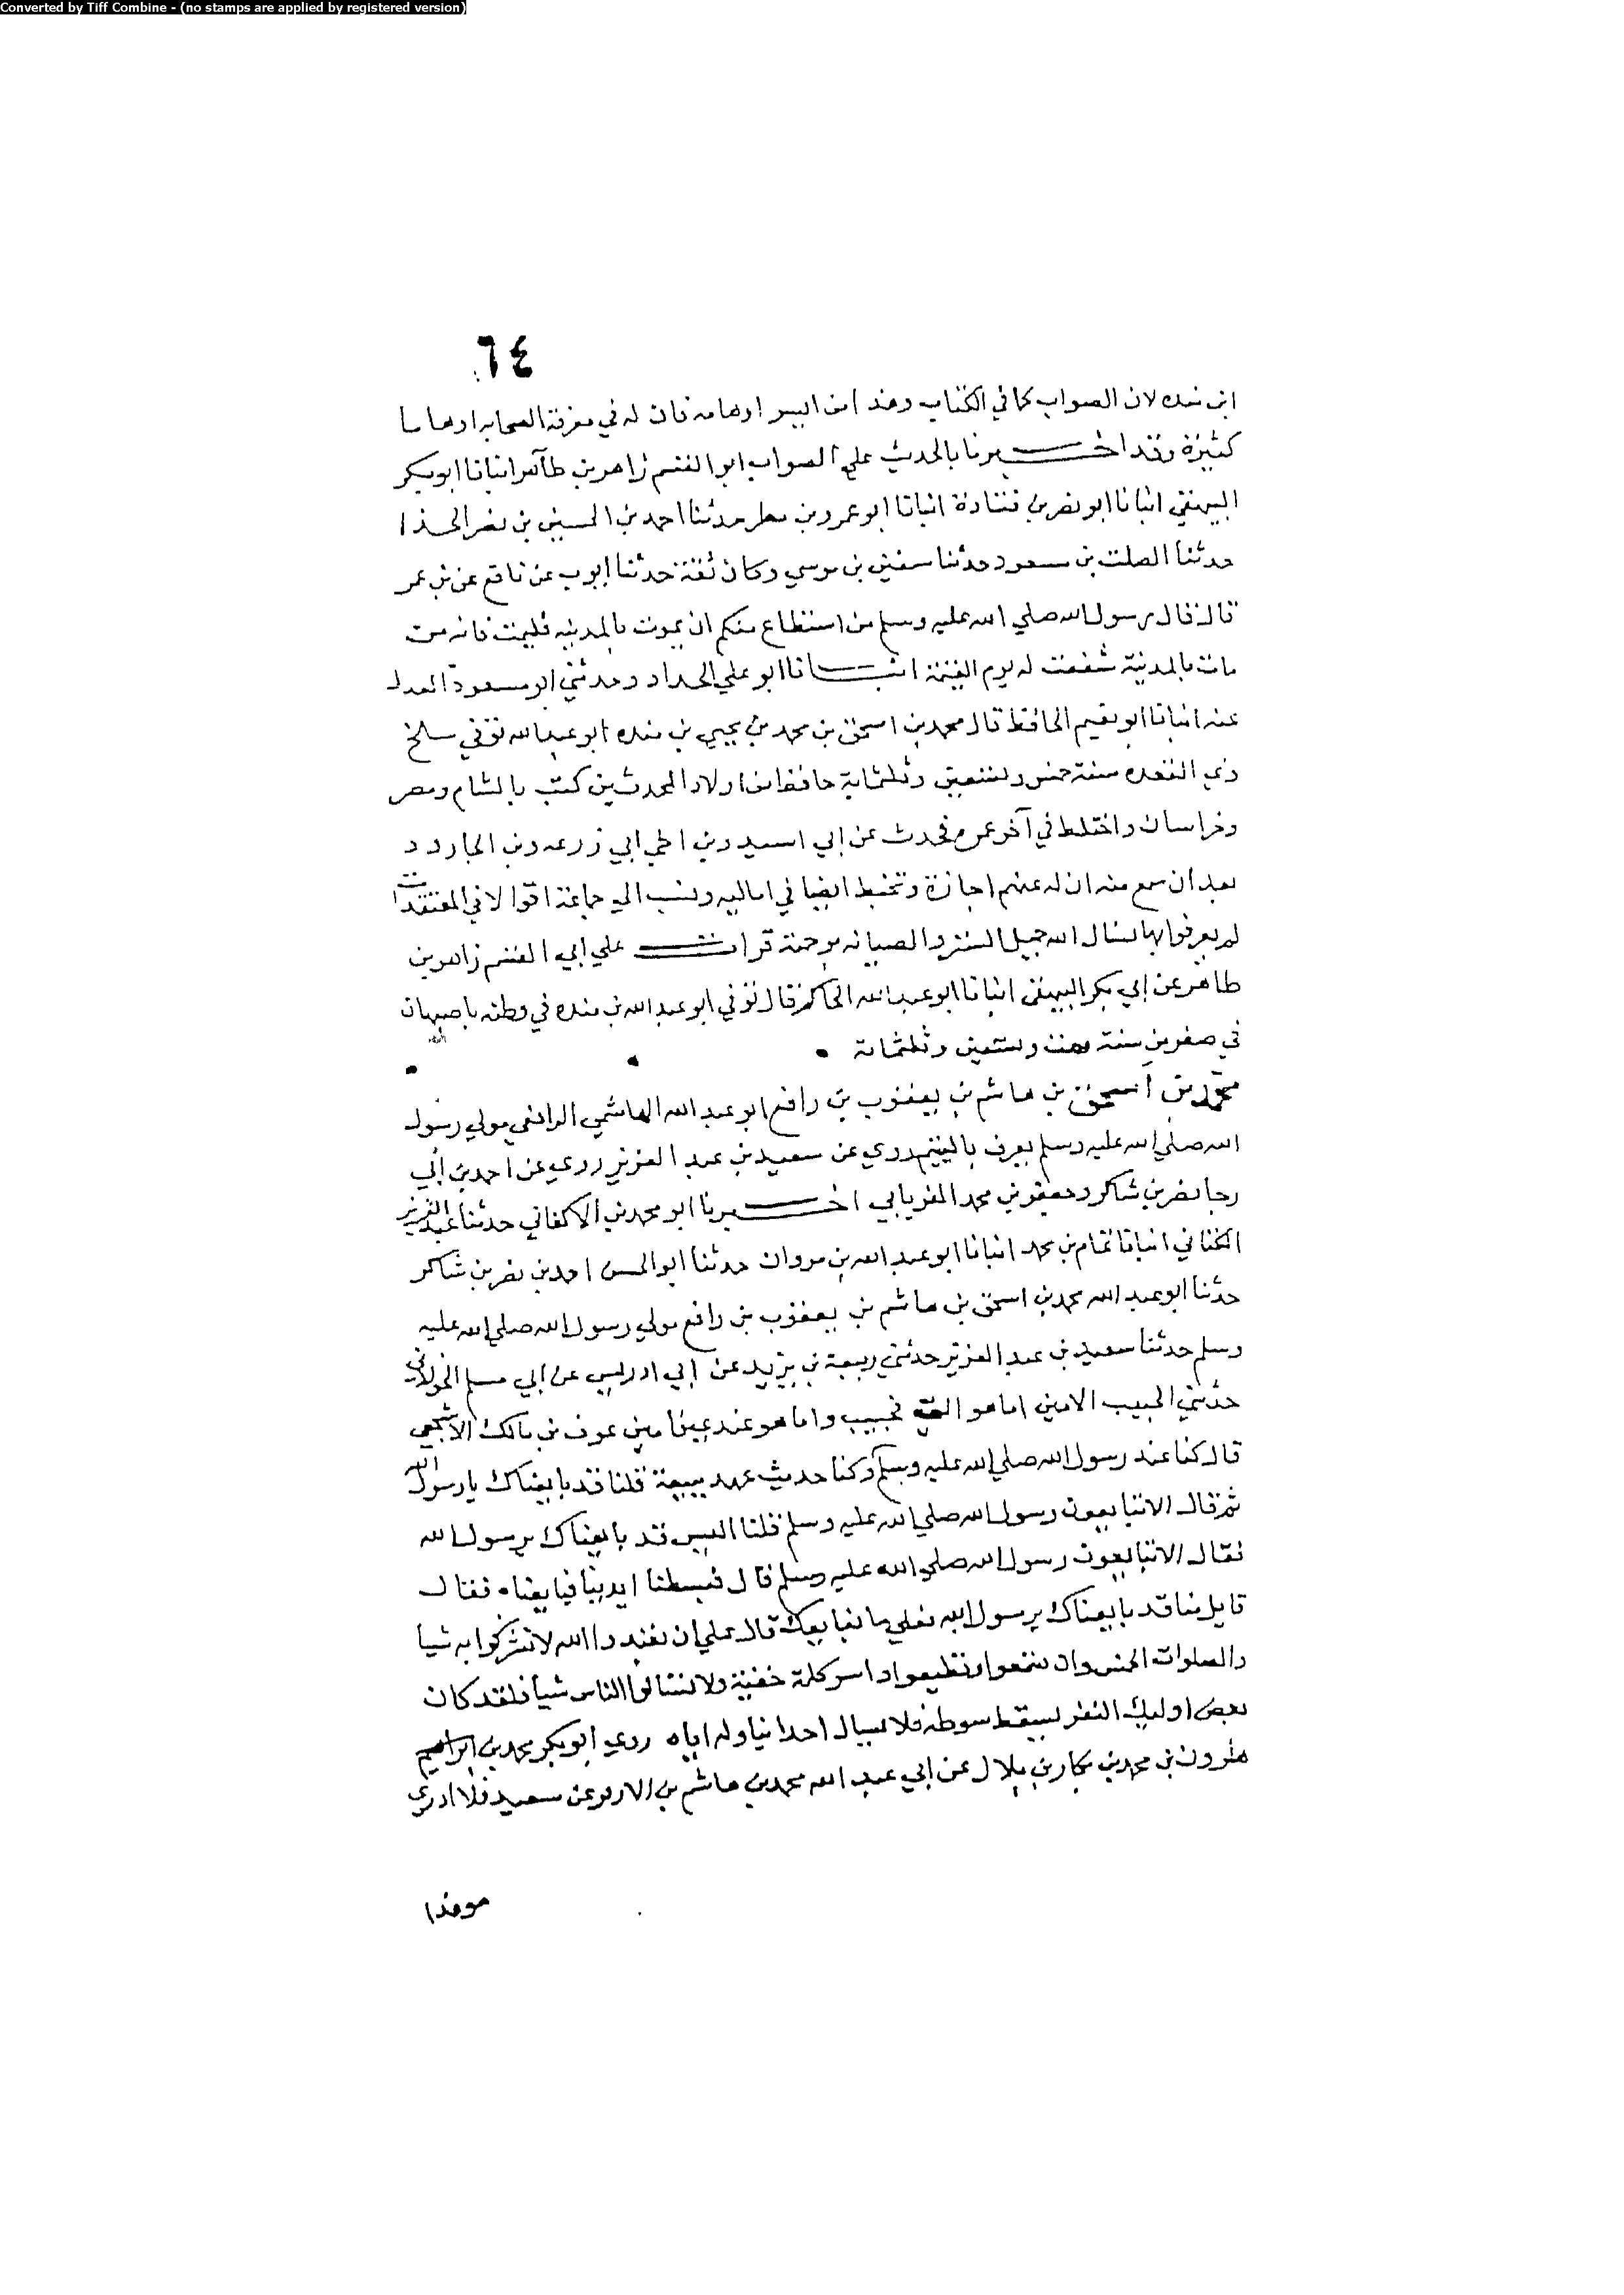 Converted by Tiff Combine - (no stamps are applied by registered version)
٦٤
ابن منده لان الصواب كما في الكتاب وهذا من ايسر اوهامه فان له في معرفة الصحابه اوهاما
كثيرة وقد اخبرنا بالحديث علي الصواب ابو القسم زاهر بن طاهر انبانا ابو بكر
البيهقي انبانا ابو نصر بن قتادة انبانا ابو عمرو بن مطر حدثنا احمد بن الحسين بن نصر الحذا
حدثنا الصلت بن مسعود حدثنا سفين بن موسي وكان ثقة حدثنا ايوب عن نافع عن بن عمر
قال قال رسول الله صلي الله عليه وسلم من استطاع منكم ان يموت بالمدينه فليمت فانه من
مات بالمدينة شفعت له يوم القيمة انبانا ابو علي الحداد وحدثني ابو مسعود العدل
عنه انبانا ابو نعيم الحافظ قال محمد بن اسحق بن محمد بن يحيي بن منده ابو عبد الله توفي سلخ
ذي القعده سنة خمس وتسعين وثلثماية حافظ من اولاد المحدثين كتب بالشام ومصر
وخراسان واختلط في آخر عمره فحدث عن ابي اسيد وبن اخي ابي زرعه وبن الجارود
بعد ان سمع منه ان له عنهم اجازة وتخبط ايضا في اماليه ونسب الي جماعة اقوالا في المعتقدات
لم يعرفوا بها نسال الله جميل الستر والصيانه برحمته قرات علي ابي القسم زاهر بن
طاهر عن ابي بكر البيهقي انبانا ابو عبد الله الحاكم قال توفي ابو عبد الله بن منده في وطنه باصبهان
في صفر من سنة ست وتسعين وثلثماية
محمد بن اسحق بن هاشم بن يعقوب بن رافع ابو عبد الله الهاشمي الرافعي مولي رسول
الله صلي الله عليه وسلم يعرف باليتيم روي عن سعيد بن عبد العزيز روي عن احمد بن ابي
رجا نصر بن شاكر وجعفر بن محمد الفريابي اخبرنا ابو محمد بن الاكفاني حدثنا عبد العزيز
الكتاني انبانا تمام بن محمد انبانا ابو عبد الله بن مروان حدثنا ابو الحسن احمد بن نصر بن شاكر
حدثنا ابو عبد الله محمد بن اسحق بن هاشم بن يعقوب بن رافع مولي رسول الله صلي الله عليه
وسلم حدثنا سعيد بن عبد العزيز حدثني ربيعة بن يزيد عن ابي ادريس عن ابي مسلم الخولاني
حدثني الحبيب الامين اما هو الي فحبيب واما هو عندي فامين عوف بن مالك الاشجعي
قال كنا عند رسول الله صلي الله عليه وسلم وكنا حديث عهد ببيعة قلنا قد بايعناك يا رسول الله
ثم قال الا تبايعون رسول الله صلي الله عليه وسلم فقلنا اليس قد بايعناك يرسول الله
فقال الا تبايعون رسول الله صلي الله عليه وسلم قال فبسطنا ايدينا فبايعناه فقال
قايل منا قد بايعناك يرسول الله فعلي ما نبايعك قال علي ان تعبدوا الله لا تشركوا به شيا
والصلوات الخمس وان تسمعوا وتطيعوا واسر كلمة خفية ولا تسالوا الناس شيا فلقد كان
بعض اوليك النفر يسقط سوطه فلا يسال احدا يناوله اياه روي ابو بكر محمد بن ابراهيم
هرون بن محمد بن بكار بن بلال عن ابي عبد الله محمد بن هاشم بن عن سعيد فلا ادري
هو هذا